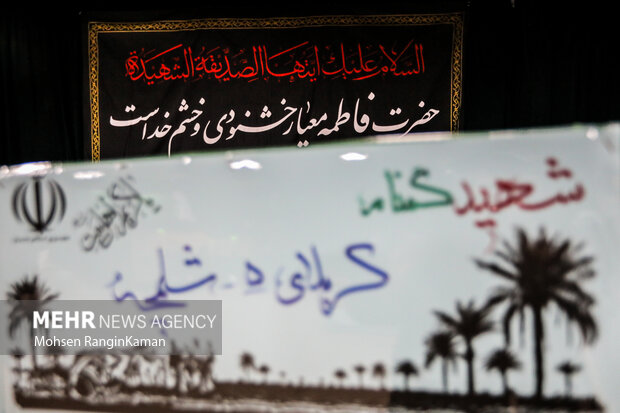 السلام علیک ایتها الصدیقة الشهیدة
حضرت فاطمه معیار خشنودی و خشم خداست
شهید گمنام
کربلای ۵ - شلمچه
MEHR NEWS AGENCY
Mohsen RanginKaman